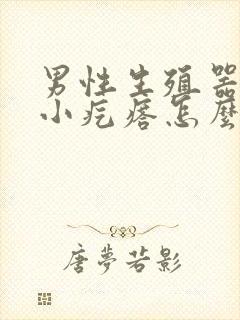 男性生殖器
小疙瘩怎麼
唐夢若影